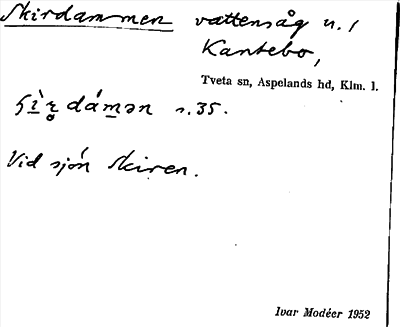 Skirdammen vattensåg u. /
Kantebo,
Tveta sn, Aspelands hd, Klm. l.
ʃì̱r̥ dám̱ən s. 35.
Vid sjön Skiren.
Ivar Modéer 1952